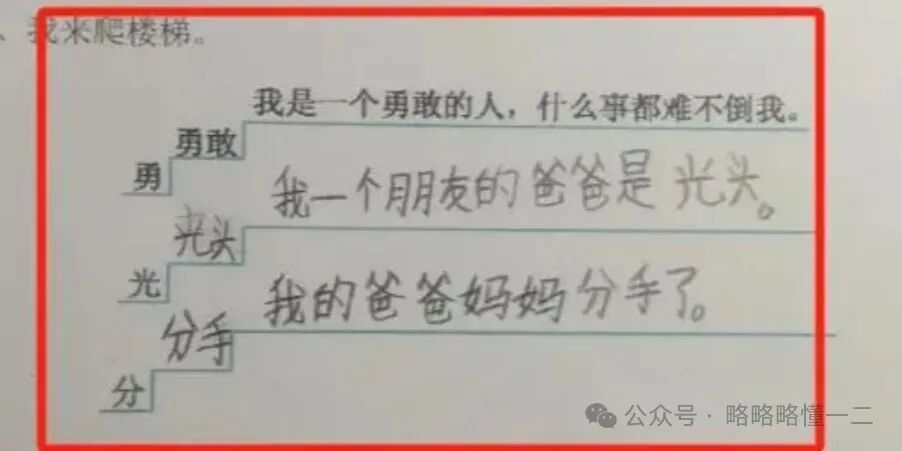 、我来爬楼梯。
我是一个勇敢的人，什么事都难不倒我。
勇敢
勇
我一个朋友的爸爸是光头。
光头
光
我的爸爸妈妈分手了。
分手
分
公众号·略略略懂一二